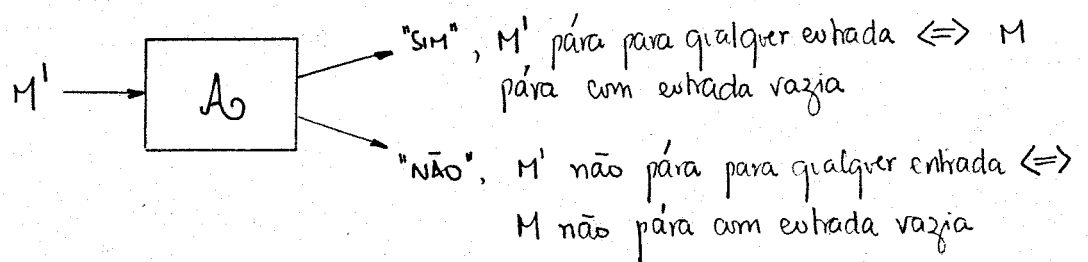 "SIM", M' pára para qualquer entrada <=> M
pára com entrada vazia
M' → A
"NÃO", M' não pára para qualquer entrada <=>
M não pára com entrada vazia